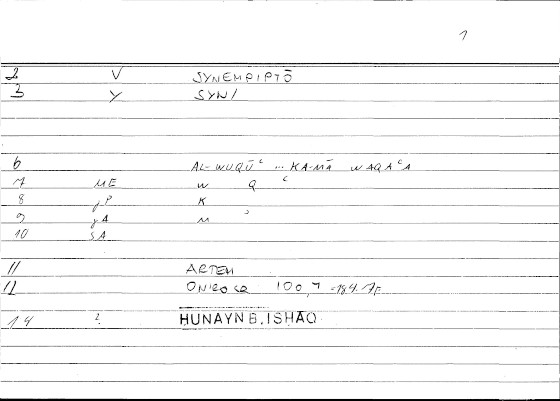 1
2 V SYNEMPIPTŌ
3 Y SYN/
6 AL-WUQŪʿ ... KA-MĀ WAQAʿA
7 ME W Q ʿ
8 P K
9 A M ʾ
10 SA
11 ARTEM
12 ONIROCR 100,7
14 2 ḤUNAYN B. ISḤĀQ